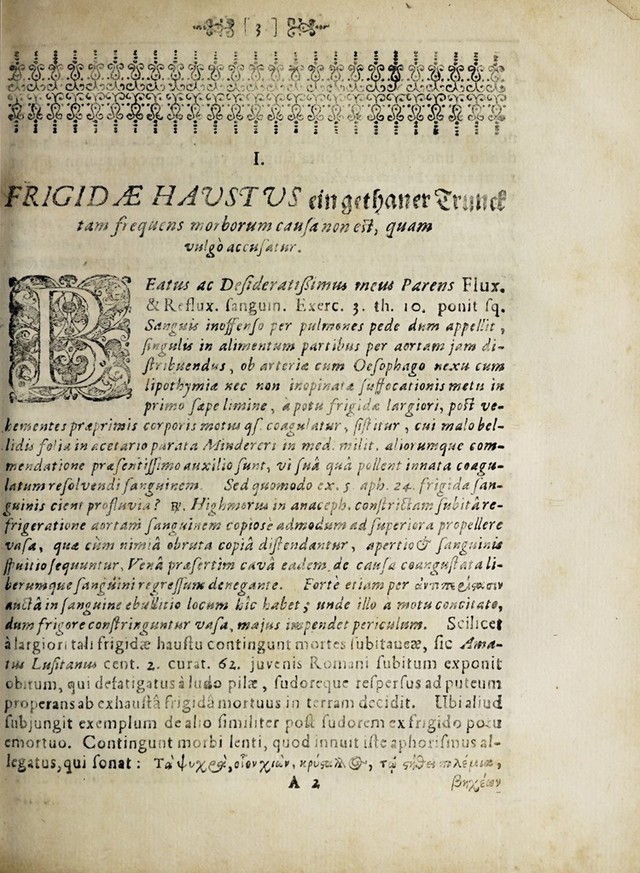 [ 3 ]
I.
FRIGIDÆ HAVSTVS ein gethaner Trunck
tam frequens morborum cauſa non eſt, quam
vulgò accuſatur.
BEatus ac Deſideratiſſimus meus Parens Flux.
& Reflux. ſanguin. Exerc. 3. th. 10. ponit ſq.
Sanguis inoffenſo per pulmones pede dum appellit,
ſingulis in alimentum partibus per aortam jam di-
ſtribuendus, ob arteriæ cum Oeſophago nexu cum
lipothymia nec non inopinatæ ſuffocationis metu in
primo ſæpe limine, à potu frigidæ largiori, poſt ve-
hementes præprimis corporis motus qſ. coagulatur, ſiſtitur, cui malo bel-
lidis folia in acetario parata Mindereri in med. milit. aliorumque com-
mendatione præſentiſſimo auxilio ſunt, vi ſuâ quâ pollent innata coagu-
latum reſolvendi ſanguinem. Sed quomodo ex. 5 aph. 24. frigida ſan-
guinis cient profluvia? ꝶ. Highmorus in anaceph. conſtrictam ſubitâ re-
frigeratione aortam ſanguinem copiosè admodum ad ſuperiora propellere
vaſa, quæ cùm nimiâ obruta copiâ diſtendantur, apertio & ſanguinis
ſputio ſequuntur, Venâ præſertim cavâ eadem de cauſa coanguſtata li-
berumque ſangùini regreſſum denegante. Fortè etiam per
auctâ in ſanguine ebullitio locum hîc habet; unde illo a motu concitato,
dum frigore conſtringuntur vaſa, majus impendet periculum. Scilicet
à largiori tali frigidæ hauſtu contingunt mortes ſubitaneæ, ſic Ama-
tus Luſitanus cent. 2. curat. 62. juvenis Romani ſubitum exponit
obitum, qui defatigatus à ludo pilæ, ſudoreque reſperſus ad puteum
properans ab exhauſtâ frigidâ mortuus in terram decidit. Ubi aliud
ſubjungit exemplum de alio ſimiliter poſt ſudorem ex frigido potu
emortuo. Contingunt morbi lenti, quod innuit iſte aphoriſmus al-
legatus, qui ſonat: Τὰ ψυχρὰ, οἷον χιὼν, κρύσταλλ@, τῷ στήθει πολέμια,
A 2 βηχέων